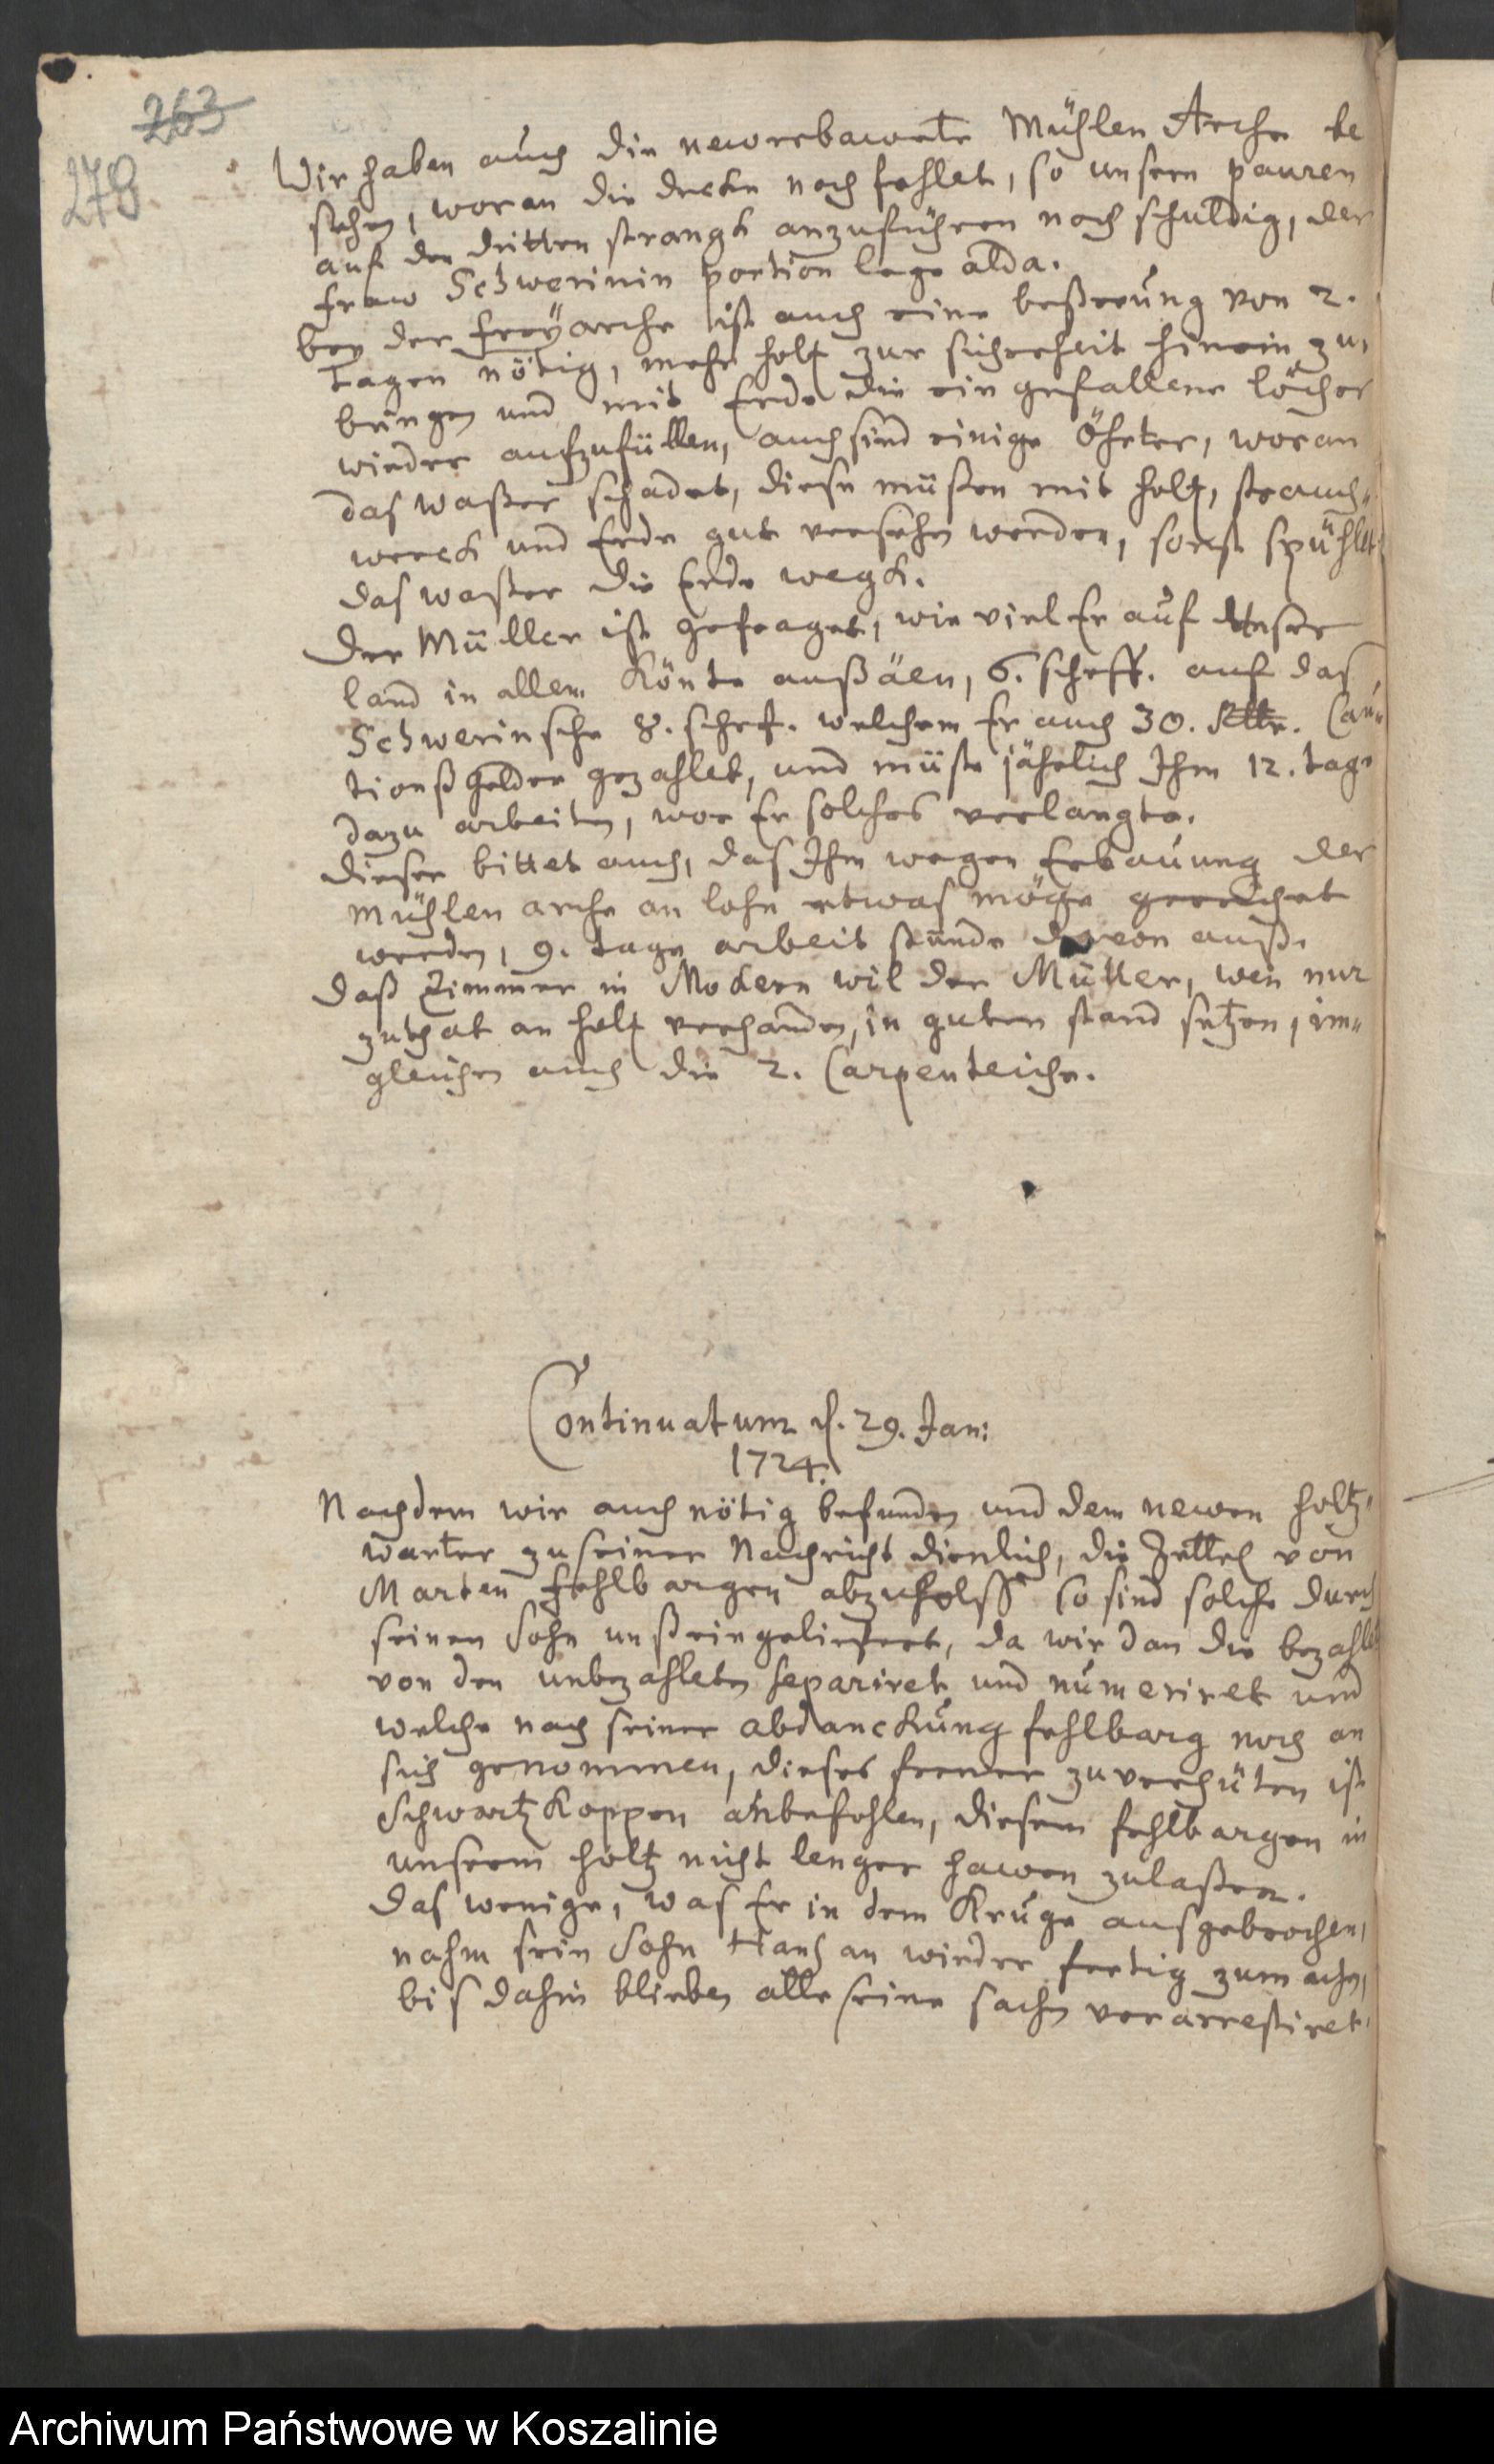 263
279
Wir haben auch die newerbawete Mühlen Arche be
sehen, woran die decke noch fehlet, so unsere pauren
auf den dritten strangk anzuführen noch schuldig, der
Fraw Schwerinin portion lege alda.
bey der freyarche ist auch eine beßerung von 2.
tagen nötig, mehr holtz zur sicherheit hinein zu,
bringen und mit Erde die ein gefallene löcher
wieder aufzufüllen, auch sind einige Öhrter, woran
das waßer schadet, diese müßen mit holtz, strauch„
werck und Erde gut versehen werden, sonst spühlet
das waßer die Erde wegk.
Der Müller ist gefraget, wie viel Er auf Unser
land in allem Könte außäen, 6. scheff. auf das
Schwerinsche 8. schef. welchem Er auch 30. Rthr. Cau„
tionß gelder gezahlet, und müste jährlich Ihm 12. tage
dazu arbeiten, wor Er solches verlangte.
Dieser bittet auch, das Ihm wegen Erbauung der
mühlen arche an lohn etwas möge gereichet
werden, 9. tage arbeit stünde davon auß.
Daß Zimmer in Mockern wil der Müller, wen nur
zuthat an holtz verhanden, in guten stand setzen, im„
gleichen auch die 2. Carpenteiche.
Continuatum d. 29. Jan:
1724.
Nachdem wir auch nötig befunden und dem newen holtz,
warter zu seiner Nachricht dienlich, die Zettel von
Marten Fehlbargen abzuholen so sind solche durch
seinen Sohn unß eingeliefert, da wir dan die bezahlte
von den unbezahleten separiret und numeriret und
welche nach seiner abdanckung fehlbarg noch an
sich genommen, dieses ferner zu verhüten ist
Schwartzkoppen anbefohlen, diesem fehlbargen in
unserm holtz nicht lenger hawen zulaßen.
Das wenige, was Er in dem Kruge ausgebrochen,
nahm sein Sohn Hans an wieder fertig zumachen,
bis dahin blieben alle seine sachen verarrestiret.
Archiwum Państwowe w Koszalinie